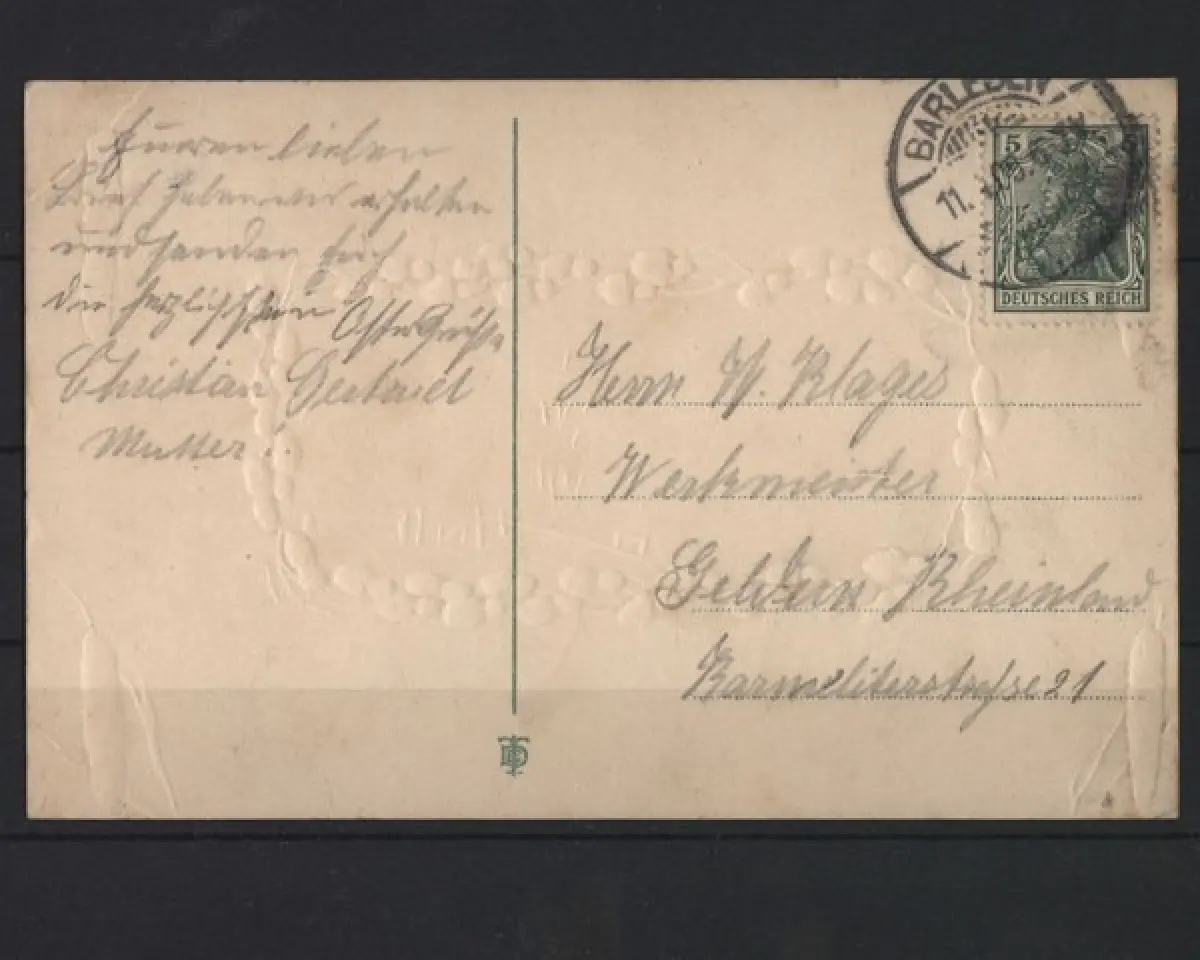 Eueren lieben
Brief haben wir erhalten
und senden Euch
die herzlichsten Ostergrüße
Christian
Mutter!
BARLEBEN
11.
5
DEUTSCHES REICH
Herrn W. Klages
Werkmeister
Geldern Rheinland
Karmeliterstraße 21